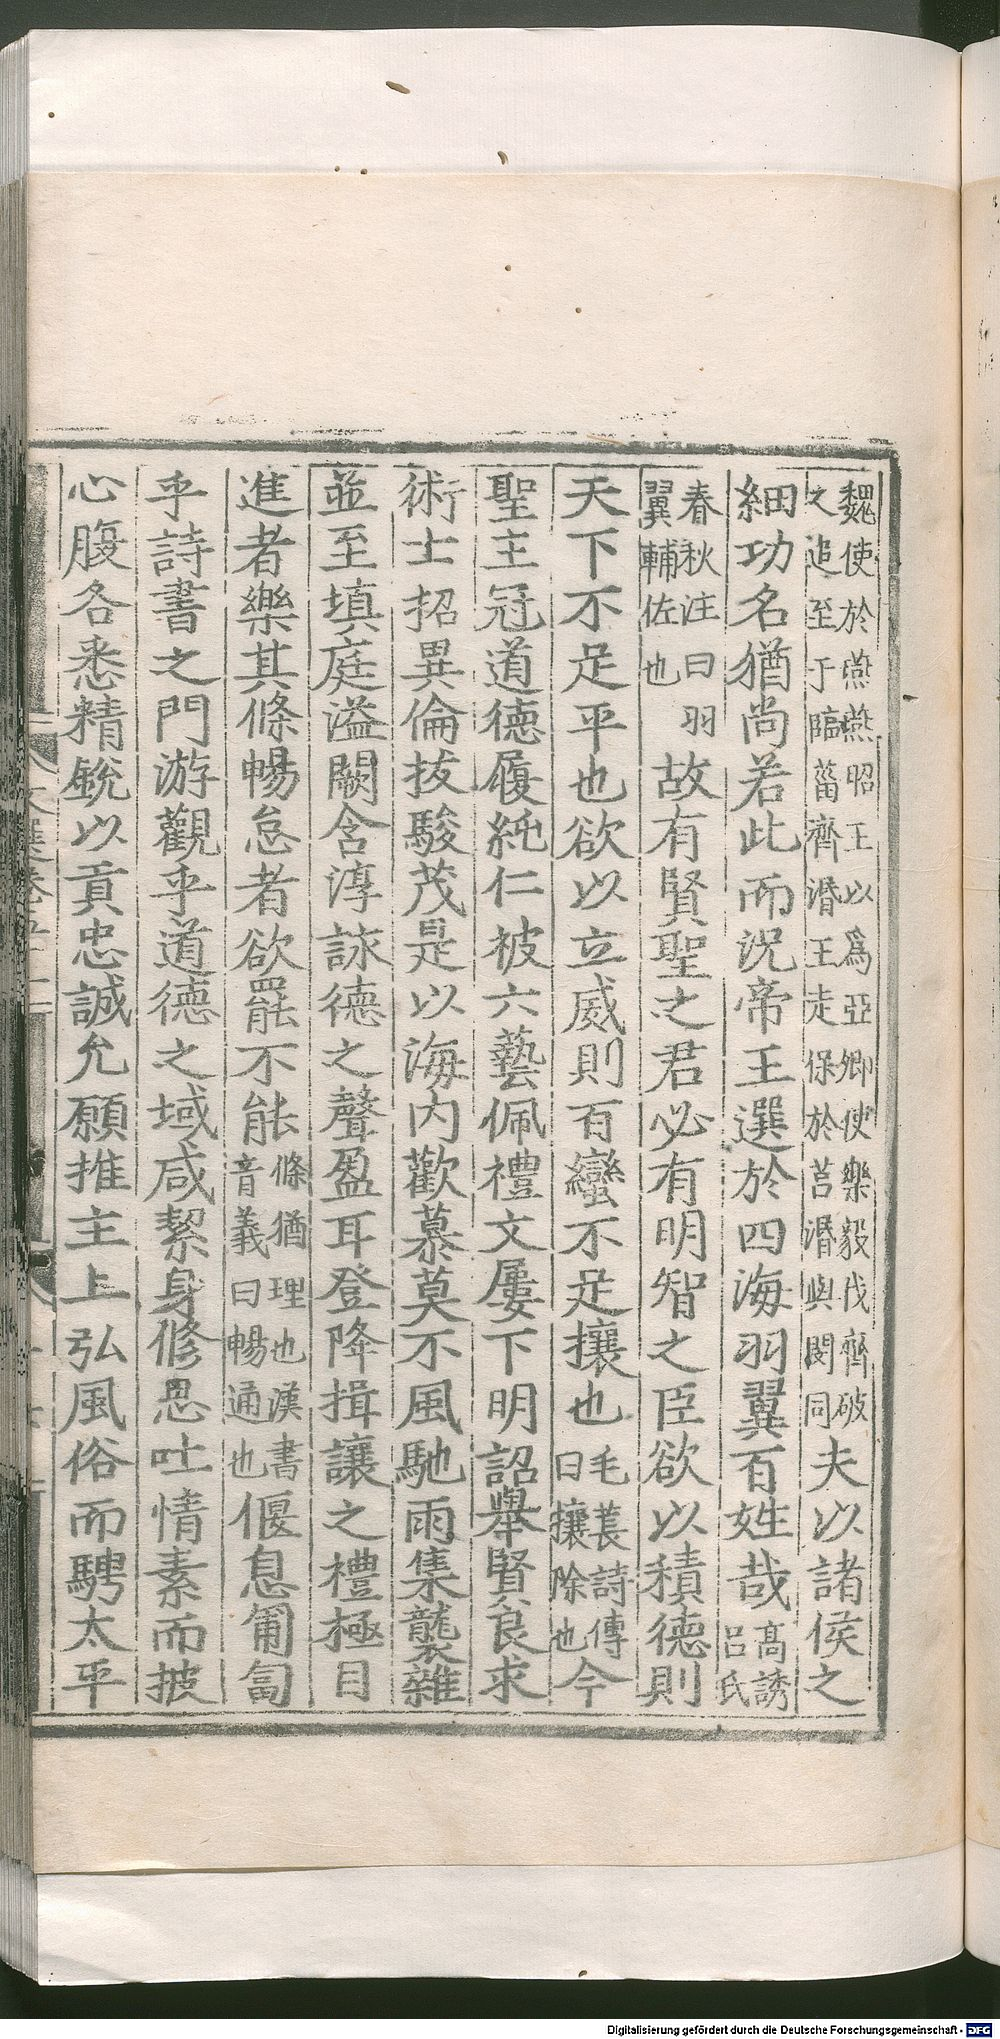 魏使於燕燕昭王以爲亞卿使樂毅伐齊破
之追至于臨菑齊湣王走保於莒湣與閔同
夫以諸侯之
細功名猶尚若此而況帝王選於四海羽翼百姓哉
高誘
呂氏
春秋注曰羽
翼輔佐也
故有賢聖之君必有明智之臣欲以積德則
天下不足平也欲以立威則百蠻不足攘也
毛萇詩傳
曰攘除也
今
聖主冠道德履純仁被六藝佩禮文屢下明詔舉賢良求
術士招異倫拔駿茂是以海内歡慕莫不風馳雨集襲雜
並至填庭溢闕含淳詠德之聲盈耳登降揖讓之禮極目
進者樂其條暢怠者欲罷不能
條猶理也漢書
音義曰暢通也
偃息匍匐
乎詩書之門游觀乎道德之域咸絜身修思吐情素而披
心腹各悉精銳以貢忠誠允願推主上弘風俗而騁太平
Digitalisierung gefördert durch die Deutsche Forschungsgemeinschaft - DFG